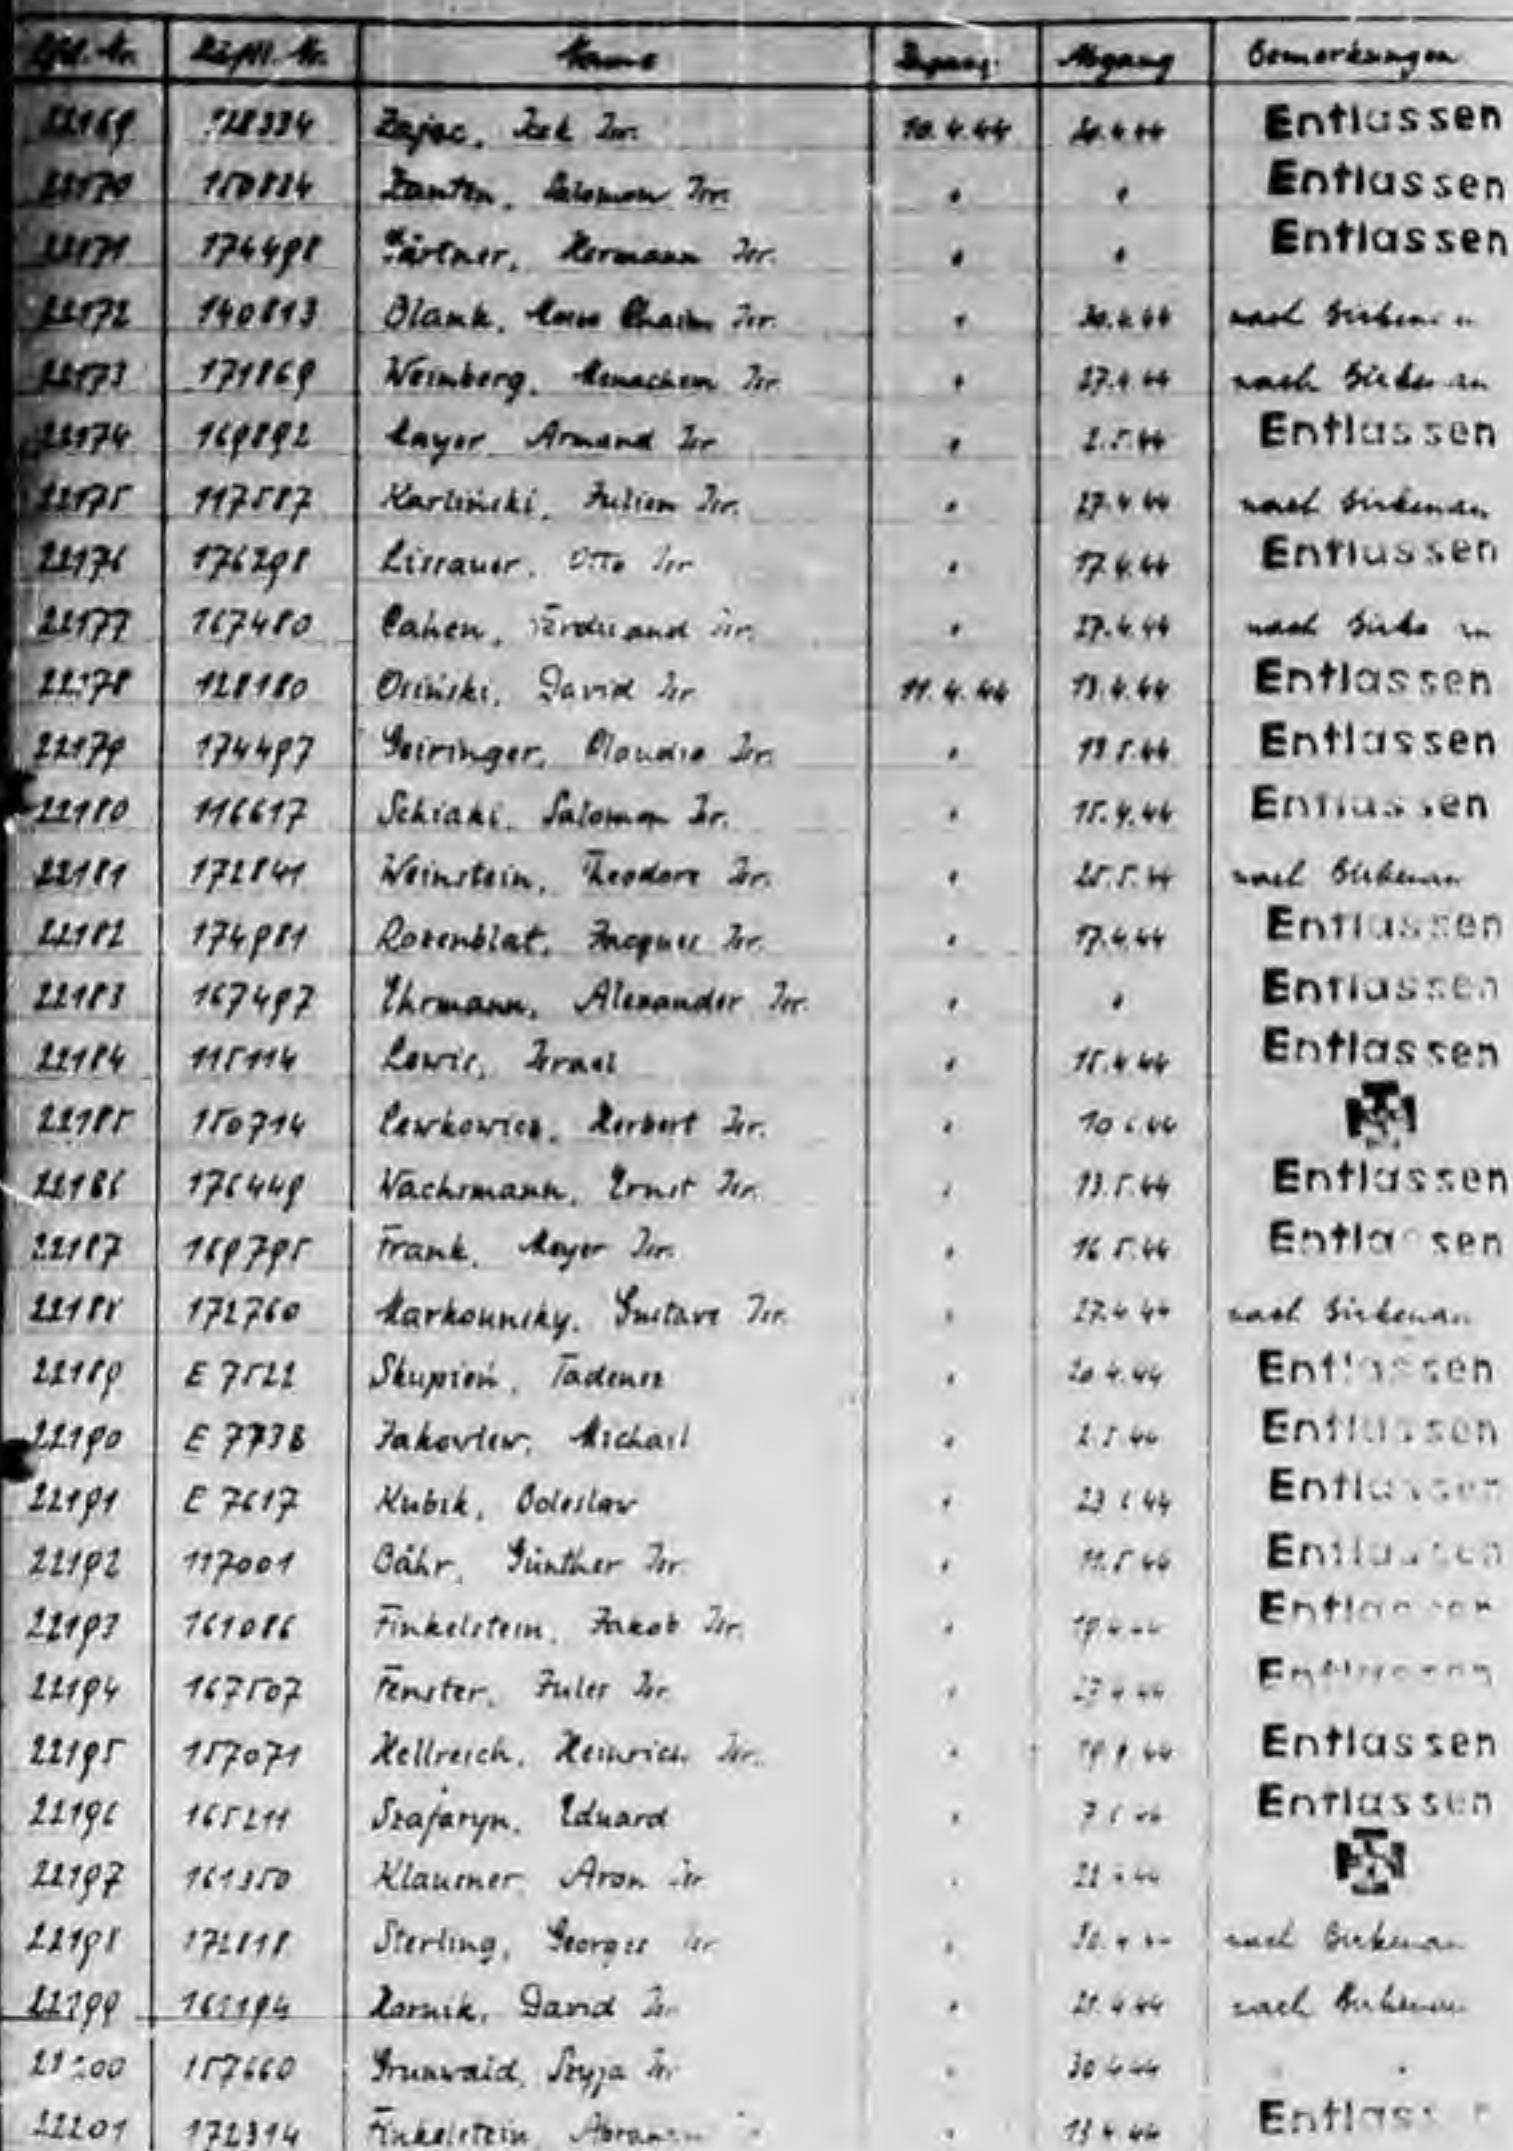 Lfd. Nr. Häftl. Nr. Name Zugang Abgang Bemerkungen
22169 128334 Zajac, Icek Isr. 10.4.44 20.4.44 Entlassen
22170 150824 Zanten, Salomon Isr. " " Entlassen
22171 174498 Gärtner, Hermann Isr. " " Entlassen
22172 140813 Blank, Chaim Isr. " 30.4.44 nach Birkenau
22173 171869 Weinberg, Menachem Isr. " 27.4.44 nach Birkenau
22174 169892 Mayer Armand Isr " 2.5.44 Entlassen
22175 117587 Karliński, Julien Isr. " 27.4.44 nach Birkenau
22176 176298 Lissauer, Otto Isr " 17.4.44 Entlassen
22177 167480 Cahen, Ferdinand Isr. " 27.4.44 nach Birkenau
22178 128180 Osiński, David Isr 11.4.44 13.4.44 Entlassen
22179 174497 Geiringer, Claudio Isr. " 13.5.44 Entlassen
22180 116617 Schiaki, Salomon Isr. " 15.4.44 Entlassen
22181 172841 Weinstein, Theodore Isr. " 25.5.44 nach Birkenau
22182 174981 Rosenblat, Jacques Isr. " 17.4.44 Entlassen
22183 167497 Ehrmann, Alexander Isr. " " Entlassen
22184 115114 Lewis, Israel " 15.4.44 Entlassen
22185 150714 Lewkowicz, Herbert Isr. " 10.6.44
22186 176449 Wachsmann, Ernst Isr. " 13.5.44 Entlassen
22187 169795 Frank, Meyer Isr. " 16.5.44 Entlassen
22188 172760 Markounsky, Gustave Isr. " 27.4.44 nach Birkenau
22189 E 7522 Skupień, Tadeusz " 20.4.44 Entlassen
22190 E 7738 Jakovlew, Michail " 2.5.44 Entlassen
22191 E 7617 Kubik, Boleslaw " 23.6.44 Entlassen
22192 117001 Bähr, Günther Isr. " 11.5.44 Entlassen
22193 161086 Finkelstein, Jakob Isr. " 19.4.44 Entlassen
22194 167507 Fenster, Jules Isr. " 27.4.44 Entlassen
22195 157071 Hellreich, Heinrich Isr. " Entlassen
22196 165211 Szafaryn, Eduard " 7.6.44 Entlassen
22197 161350 Klausner, Aron Isr "
22198 172818 Sterling, Georges Isr " 30.4.44 nach Birkenau
22199 161194 Hornik, David Isr " 21.4.44 nach Birkenau
22200 157660 Grunwald, Szyja Isr " 30.4.44 " "
22201 172314 Finkelstein, Abraham " 13.4.44 Entlassen